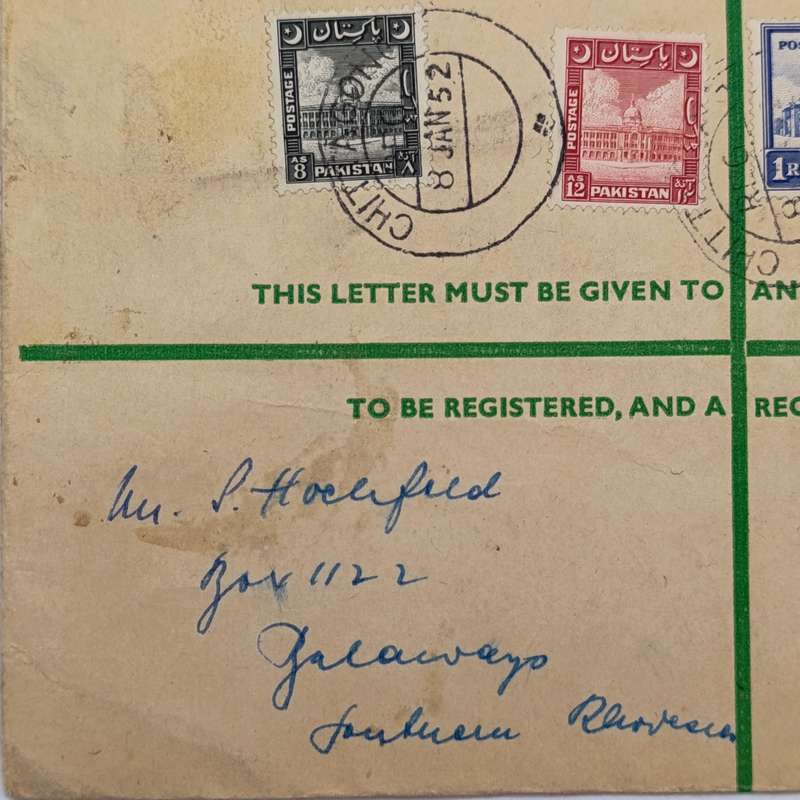 پاکستان
POSTAGE
AS 8
PAKISTAN
CHITTAGONG
8 JAN 52
پاکستان
POSTAGE
AS 12
PAKISTAN
CHITT
POS
1 R
THIS LETTER MUST BE GIVEN TO AN
TO BE REGISTERED, AND A REC
Mr. S. Hochfeld
Box 1122
Bulawayo
Southern Rhodesia